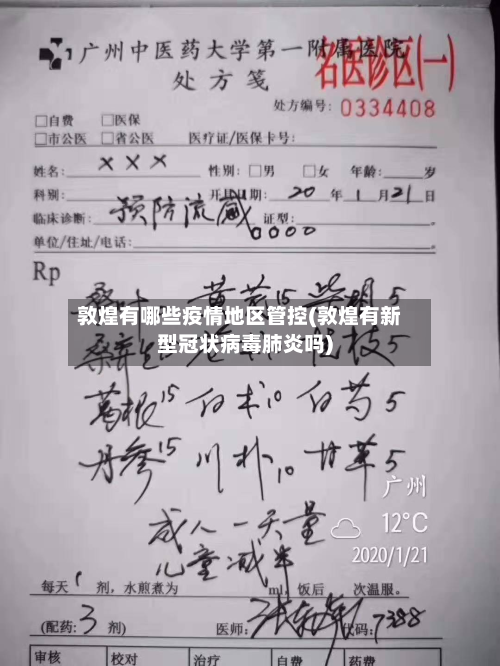 1广州中医药大学第一附属医院
名医诊区(一)
处方笺
处方编号: 0334408
□自费 □医保
□市公医 □省公医 医疗证/医保卡号:
姓名: ××× 性别: □男 □女 年龄: 岁
科别: 日期: 20 年 1 月 21 日
临床诊断: 预防流感 证型:
单位/住址/电话: 0000
Rp
黄芪15 柴胡5
敦煌有哪些疫情地区管控(敦煌有新
型冠状病毒肺炎吗)
桑寄生 枝5
葛根15 白术10 白芍5
丹参15 川朴10 甘草5
广州
成人一天量
12°C
儿童减半
2020/1/21
每天 1 剂,水煎煮为 ml,饭后 次温服。
(配药: 3 剂) 医师: 代码: 7388
审核 校对 治疗 自费 药费